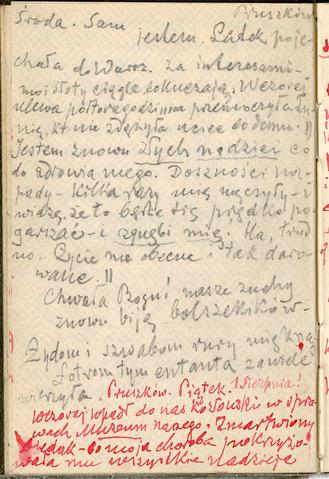 Pruszków.
Środa. Sam
jestem. Ludek poje-
chała do Warsz. za interesami-
moi stoty ciągle dokuczają. Wczoraj
ulewa półtoragodzinna przemoczyła ży
nię, kt nie zdążyła uciec do domu.
Jestem znowu złych nadziei co
do zdrowia mego. Duszności na-
pady - kilka razy mię męczyły - u
ważę, że to będzie się prędko po
garszać - i zgnębi mię. Ha, trud
no. Życie me obecne i tak daro-
wane.
Chwała Bogu! nasze zuchy
znowu biją bolszewików-
Żydom i szwabom rury miękną
łotrom tym entanta zawie
wierzyła.
Pruszków. Piątek. 1 Sierpnia!
Wczoraj wpadł do nas Kozłowski w spra-
wach Muzeum naszego. Zmartwiony
jednak - bo moja choroba pokrzyżo-
wała mu wszystkie nadzieje